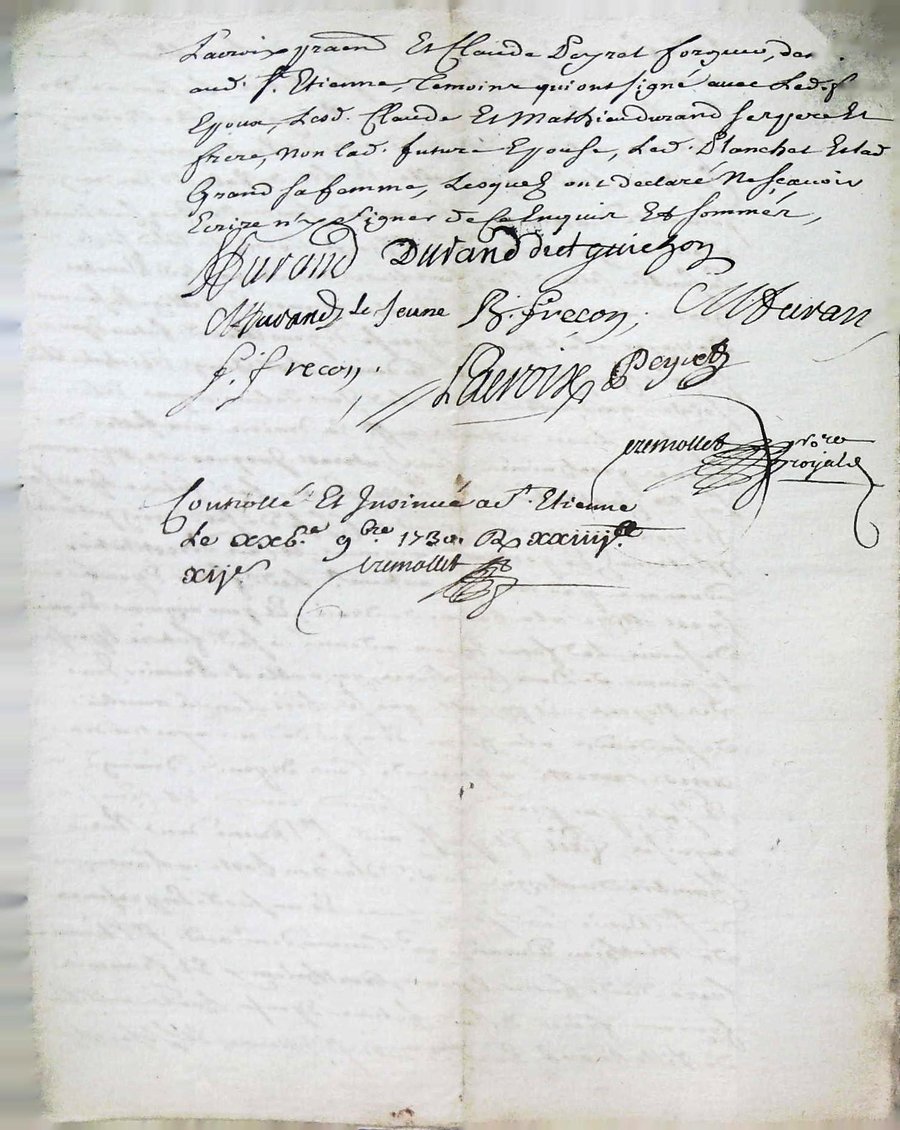 Lacroix praend Et Claude Peyret forgeur, de
aud. St. Etienne, temoins qui ont signé avec Led. f
Epoux, Lesd. Claude Et Mathieu durand ses pere Et
frere, Non lad. future Epouse, Led. Planchet Et lad
Grand sa femme, Lesquels ont declaré Ne sçavoir
Ecrire ny signer de Ce Enquis Et sommés,
Durand Durand dect guichon
M Durand le jeune B. frecon. CM. duran
f. frecon. Lacroix Peyret
tremollet nore
royal
Controllé Et Insinué a St. Etienne
Le xxb.e 9bre. 1730. R xxiiij
xije tremollet